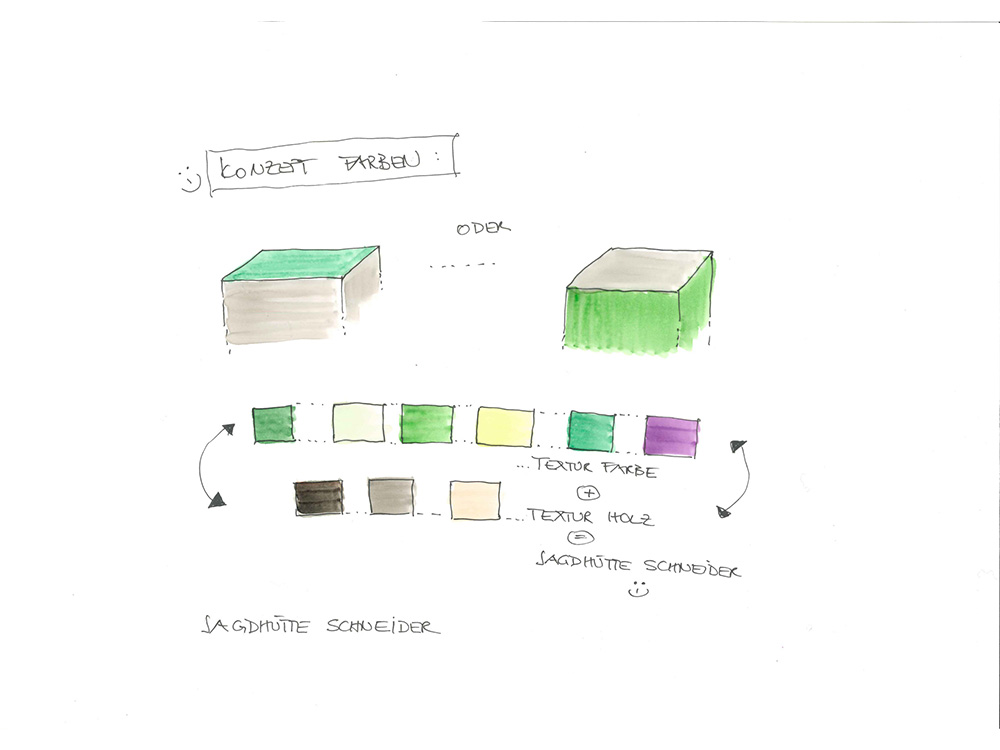 KONZEPT FARBEN :
ODER
... TEXTUR FARBE
+
... TEXTUR HOLZ
=
JAGDHÜTTE SCHNEIDER
JAGDHÜTTE SCHNEIDER